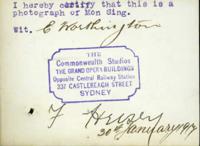 I hereby certify that this is a
photograph of Mon Sing.
Wit. C Worthington
THE
Commonwealth Studios
THE GRAND OPERA BUILDINGS
Opposite Central Railway Station
337 CASTLEREAGH STREET
SYDNEY
F
20th January 1917